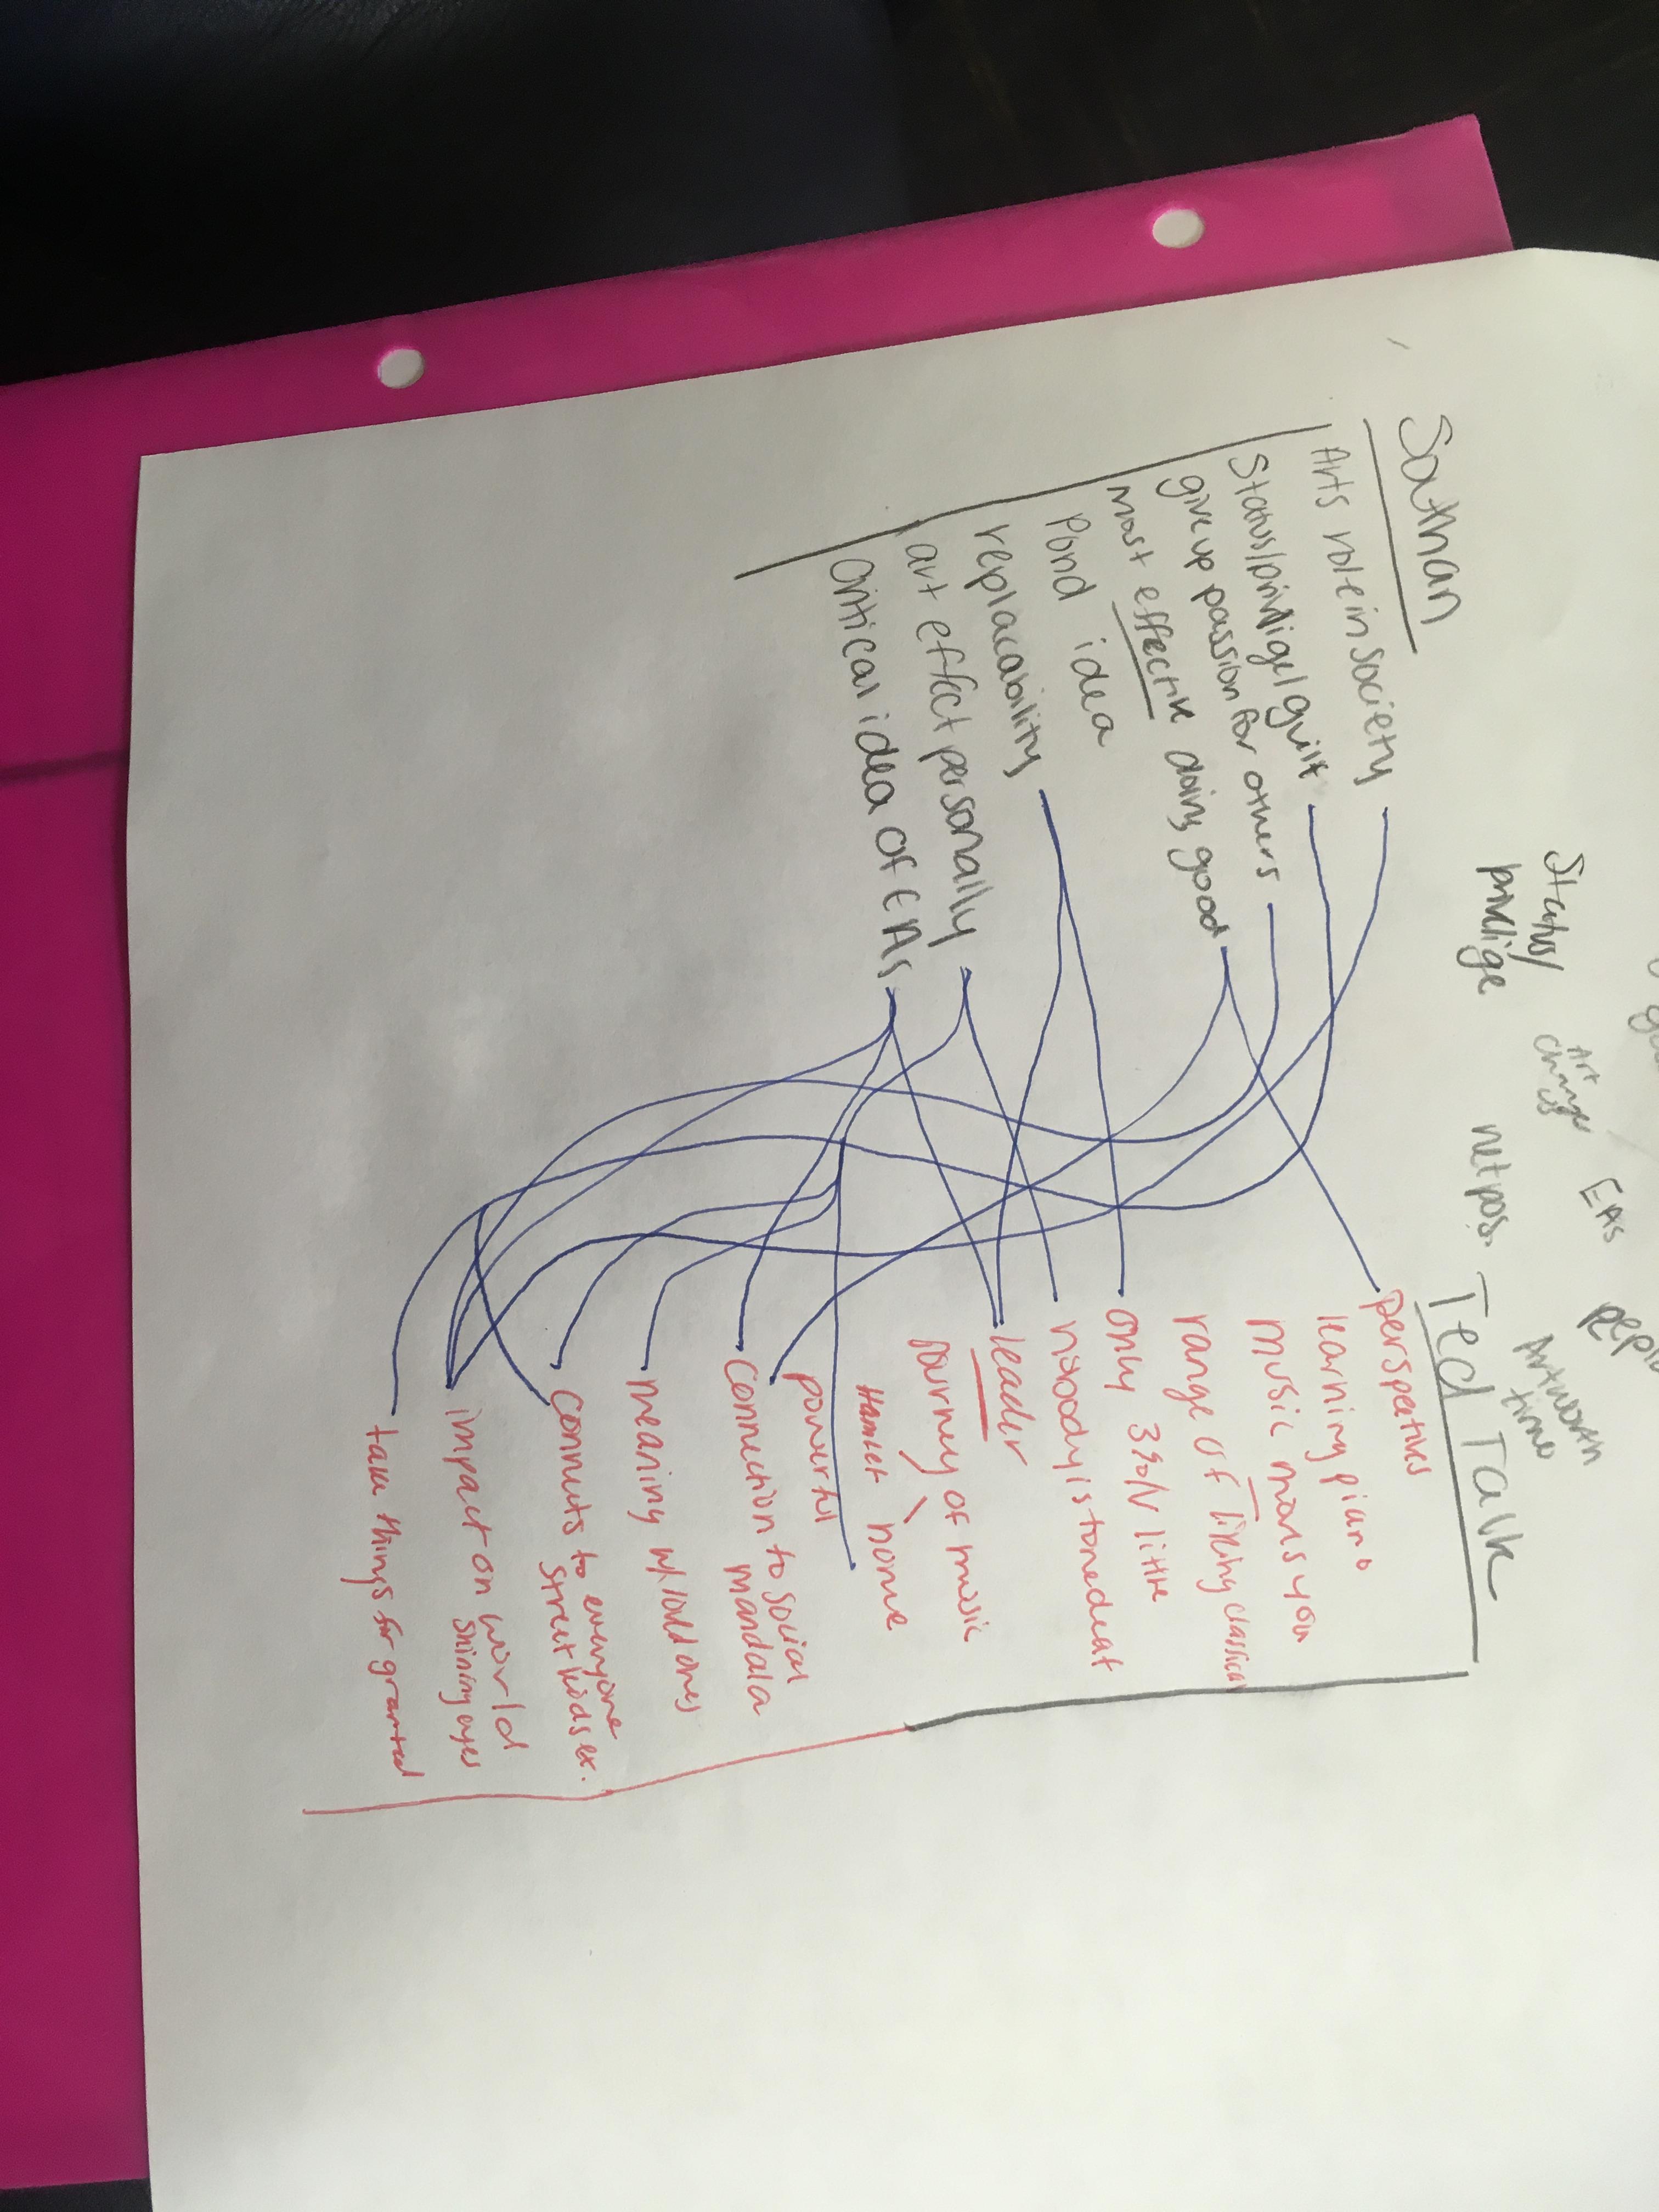 Status/
privelige
Art
changes
us
EAs
net pos.
Art worth
time
Southan
Arts role in society
Status/privelige/guilt
give up passion for others
most effective doing good
Pond idea
replacability
art effect personally
Critical idea of EAs
Ted Talk
perspectives
learning piano
music moves you
range of liking classical
only 3% love little
nobody is tonedeaf
leader
Journey of music
Hamlet home
powerful
Connection to social
mandala
meaning w/ loved ones
Connects to everyone
street kids ex.
impact on world
shining eyes
take things for granted